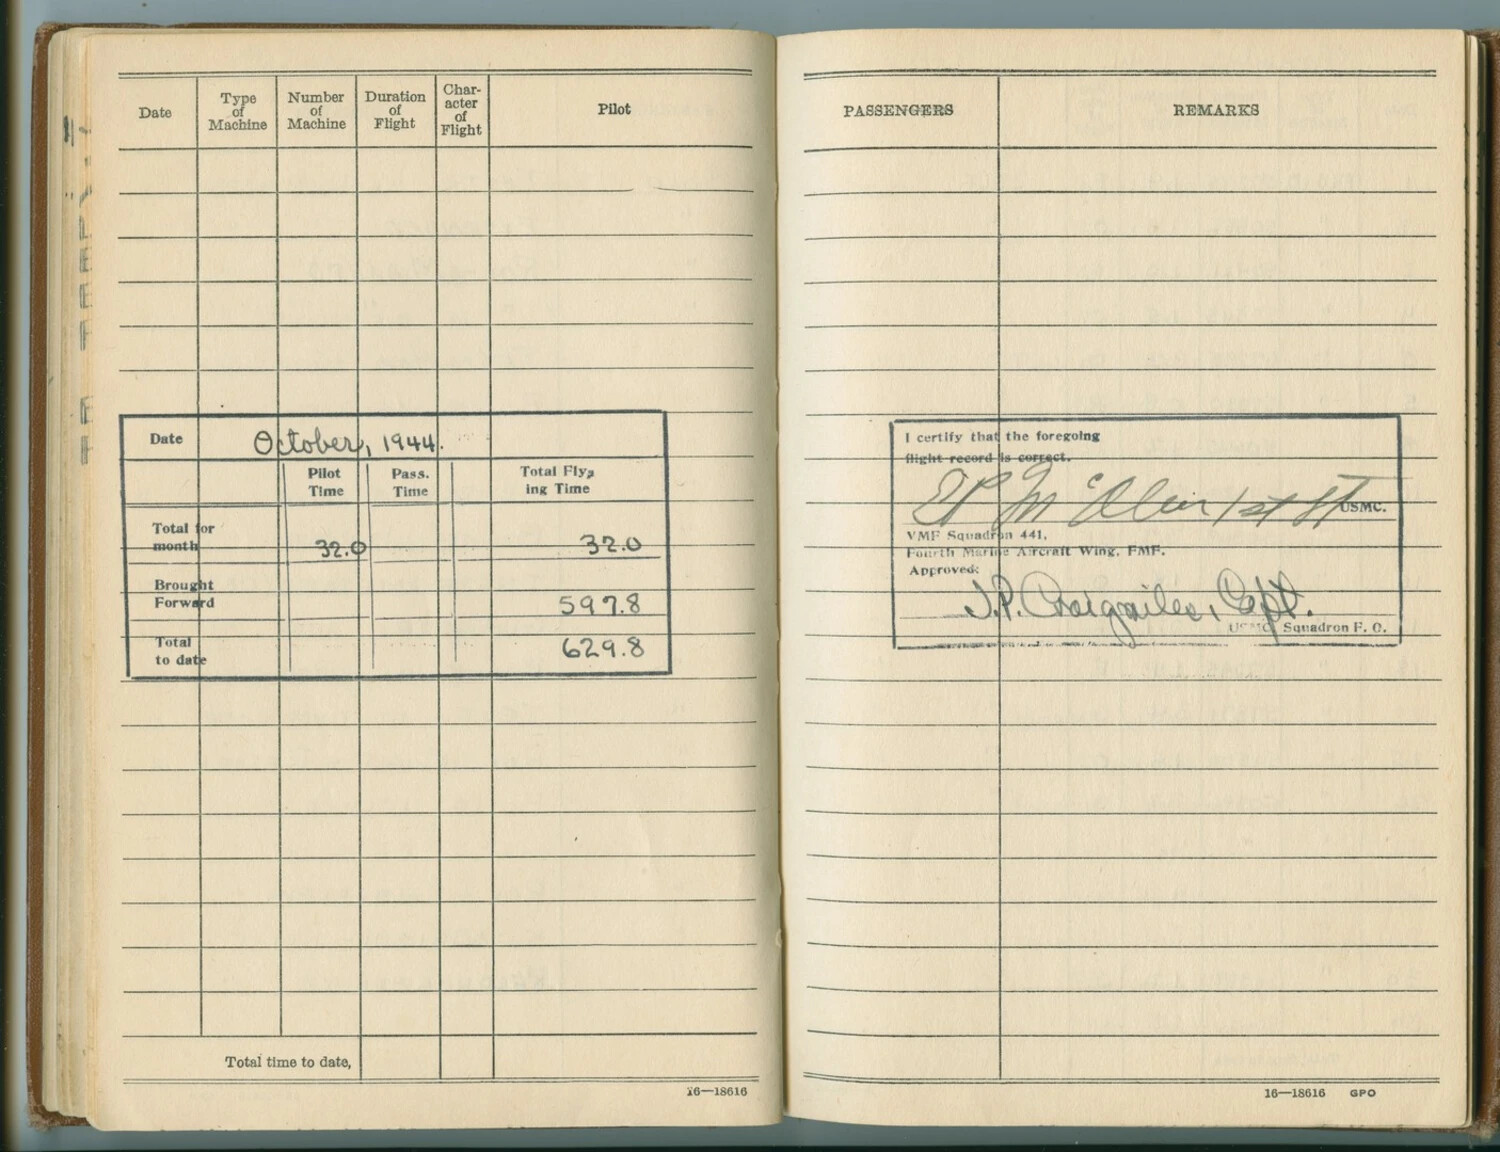 Date
Type of Machine
Number of Machine
Duration of Flight
Character of Flight
Pilot
Date October, 1944.
Pilot Time
Pass. Time
Total Flying Time
Total for month 32.0 32.0
Brought Forward 597.8
Total to date 629.8
Total time to date,
16—18616
PASSENGERS
REMARKS
I certify that the foregoing
flight record is correct.
1st Lt USMC.
VMF Squadron 441,
Fourth Marine Aircraft Wing, FMF.
Approved:
J.P. Craigmiles, Capt.
USMC Squadron F. O.
16—18616 GPO